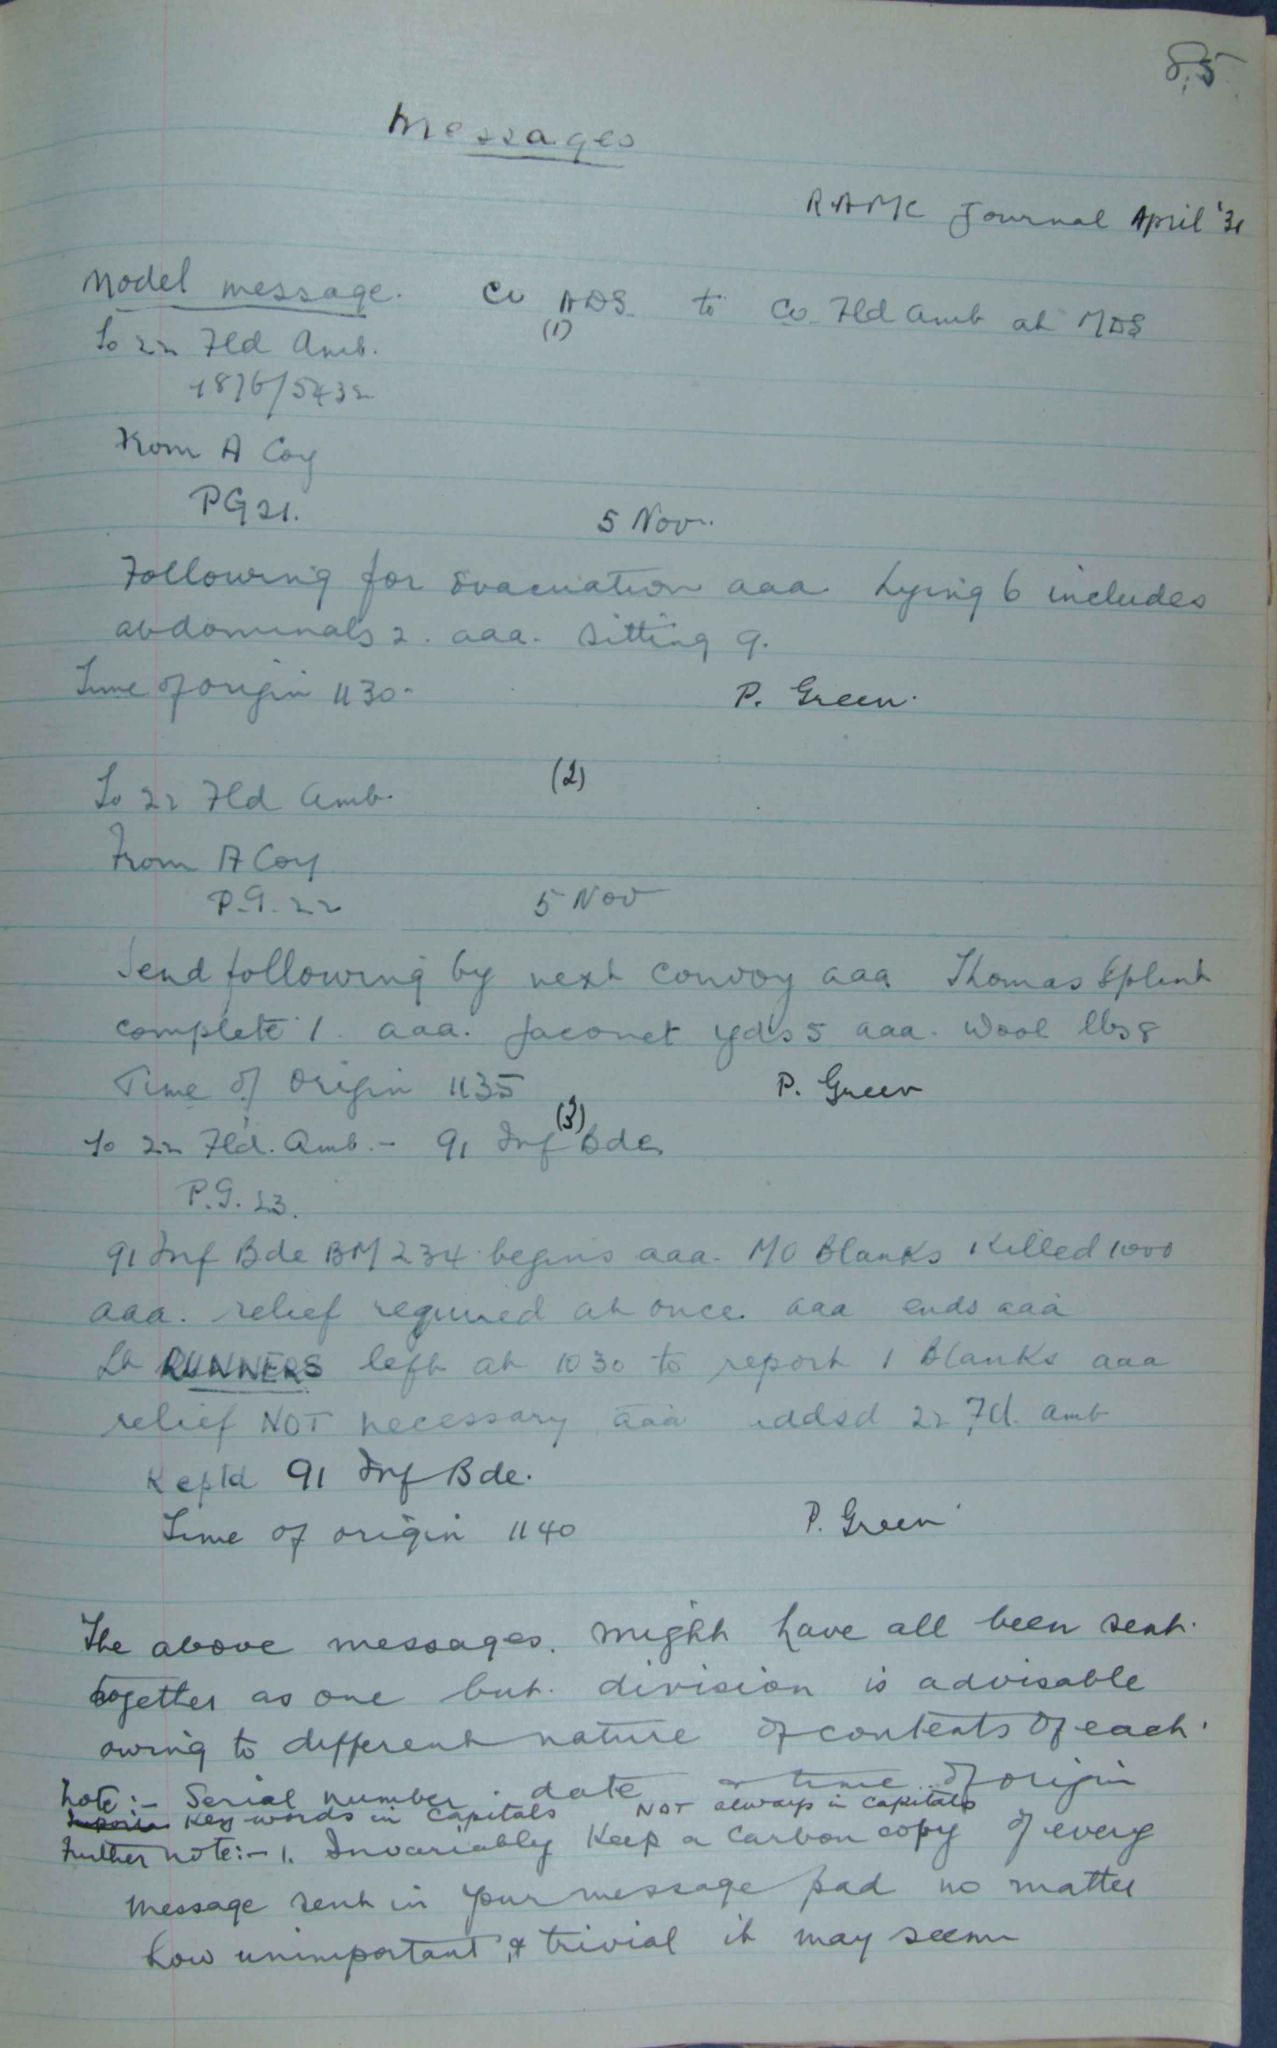 85
Messages
RAMC Journal April '31
Model message. CO ADS to CO Fld Amb at MDS
(1)
To 22 Fld Amb.
1876/5432
From A Coy
PG21. 5 Nov.
Following for evacuation aaa Lying 6 includes
abdominals 2. aaa. Sitting 9.
Time of origin 1130. P. Green.
(2)
To 22 Fld Amb.
From A Coy
P.G. 22 5 Nov
Send following by next convoy aaa Thomas Splint
complete 1 aaa. Jaconet yds 5 aaa. Wool lbs 8
Time of origin 1135 P. Green
(3)
To 22 Fld. Amb. - 91 Inf Bde
P.G. 23.
91 Inf Bde BM 234 begins aaa. MO Blanks killed 1000
aaa. relief required at once. aaa ends aaa
Lt RUNNERS left at 1030 to report 1 Blanks aaa
relief NOT necessary aaa addsd 22 Fd. Amb
Reptd 91 Inf Bde.
Time of origin 1140 P. Green
The above messages. might have all been sent.
together as one but. division is advisable
owing to different nature of contents of each.
Note:- Serial number. date & time of origin
Key words in Capitals NOT always in capitals
Further note:- 1. Invariably keep a carbon copy of every
message sent in your message pad no matter
how unimportant & trivial it may seem